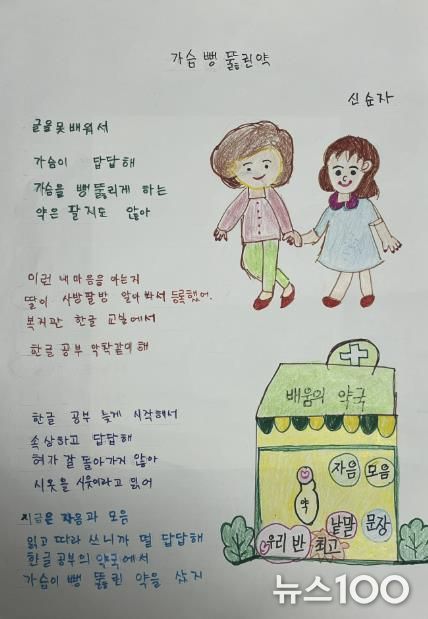 가슴 뻥 뚫린약
신순자
글을 못 배워서
가슴이 답답해
가슴을 뻥 뚫리게 하는
약은 팔지도 않아
이런 내 마음을 아는지
딸이 사방팔방 알아봐서 등록했어.
복지관 한글 교실에서
한글 공부 악착같이 해
한글 공부 늦게 시작해서
속상하고 답답해
혀가 잘 돌아가지 않아
시옷을 시읏이라고 읽어
지금은 자음과 모음
읽고 따라 쓰니까 덜 답답해
한글공부의 약국에서
가슴이 뻥 뚫린 약을 샀지
배움의 약국
자음 모음
약
낱말 문장
우리 반 최고
뉴스100